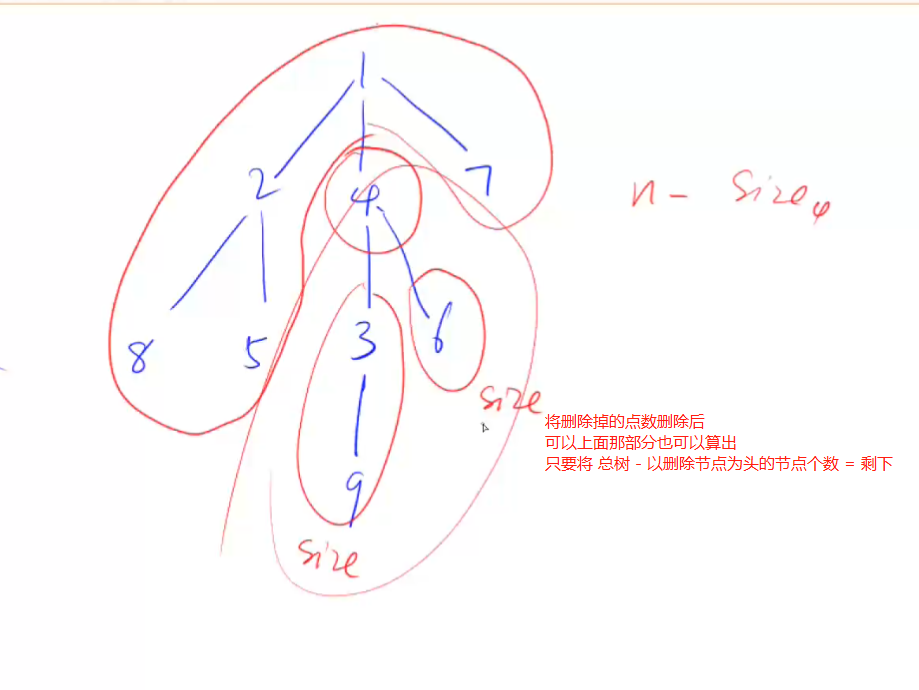 1
2 4 7
n - size₄
8 5 3 6
size
9
size
将删除掉的点数删除后
可以上面那部分也可以算出
只要将 总树 - 以删除节点为头的节点个数 = 剩下